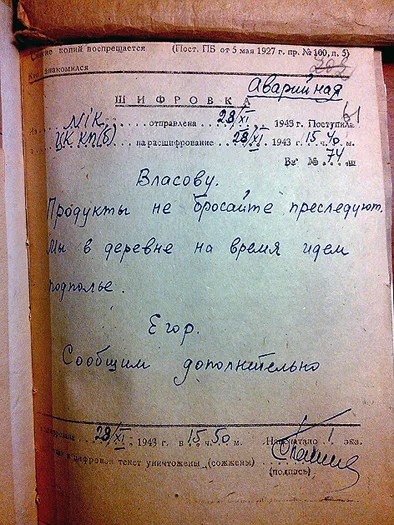 Снятие копий воспрещается (Пост. ПБ от 5 мая 1927 г. пр. № 100, п. 5)
ознакомился
203
Аварийная
ШИФРОВКА 61
Из NIK отправлена 28/XI 1943 г. Поступила
ЦК КП(б) на расшифрование 28/XI 1943 г. 15 ч. 40 м.
Вх № 74 ш
Власову.
Продукты не бросайте, преследуют.
Мы в деревне на время идем
подполье.
Егор.
Сообщим дополнительно
28/XI 1943 г. в 15 ч. 50 м. Напечатано 1 экз.
и цифровой текст уничтожены (сожжены)
(подпись)